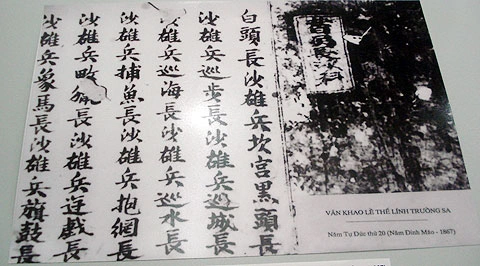 白頭長沙雄兵坎宮黑頭長
沙雄兵巡步長沙雄兵巡城長
雄兵巡海長沙雄兵巡水長
沙雄兵捕魚長沙雄兵抱網長
沙雄兵長沙雄兵遊戲長
沙雄兵象馬長沙雄兵旗鼓長
VĂN KHAO LỄ THẾ LÍNH TRƯỜNG SA
Năm Tự Đức thứ 20 (Năm Đinh Mão - 1867)